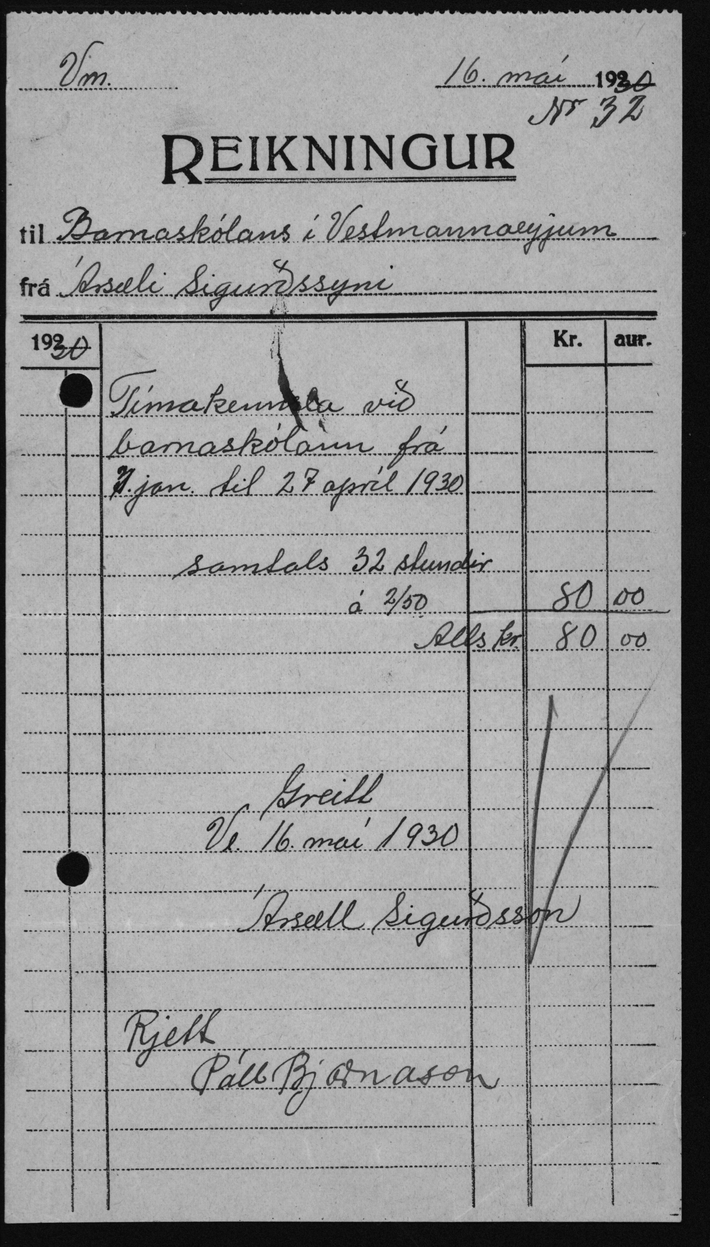 Vm. 16. maí 1930
Nr 32
REIKNINGUR
til Barnaskólans í Vestmannaeyjum
frá Ársæli Sigurðssyni
1930 Kr. aur.
Tímakennsla við
barnaskólann frá
7. jan. til 27 apríl 1930
samtals 32 stundir
á 2/50 80 00
Alls kr. 80 00
Greitt
Ve. 16. maí 1930
Ársæll Sigurðsson
Rjett
Páll Bjarnason